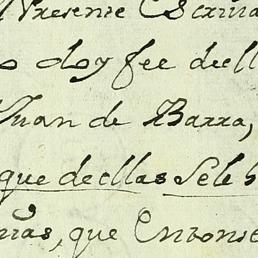 Presente Escriva
doy fee de ell
Juan de Barra,
que de ellas Sele h
mas, que Entonse